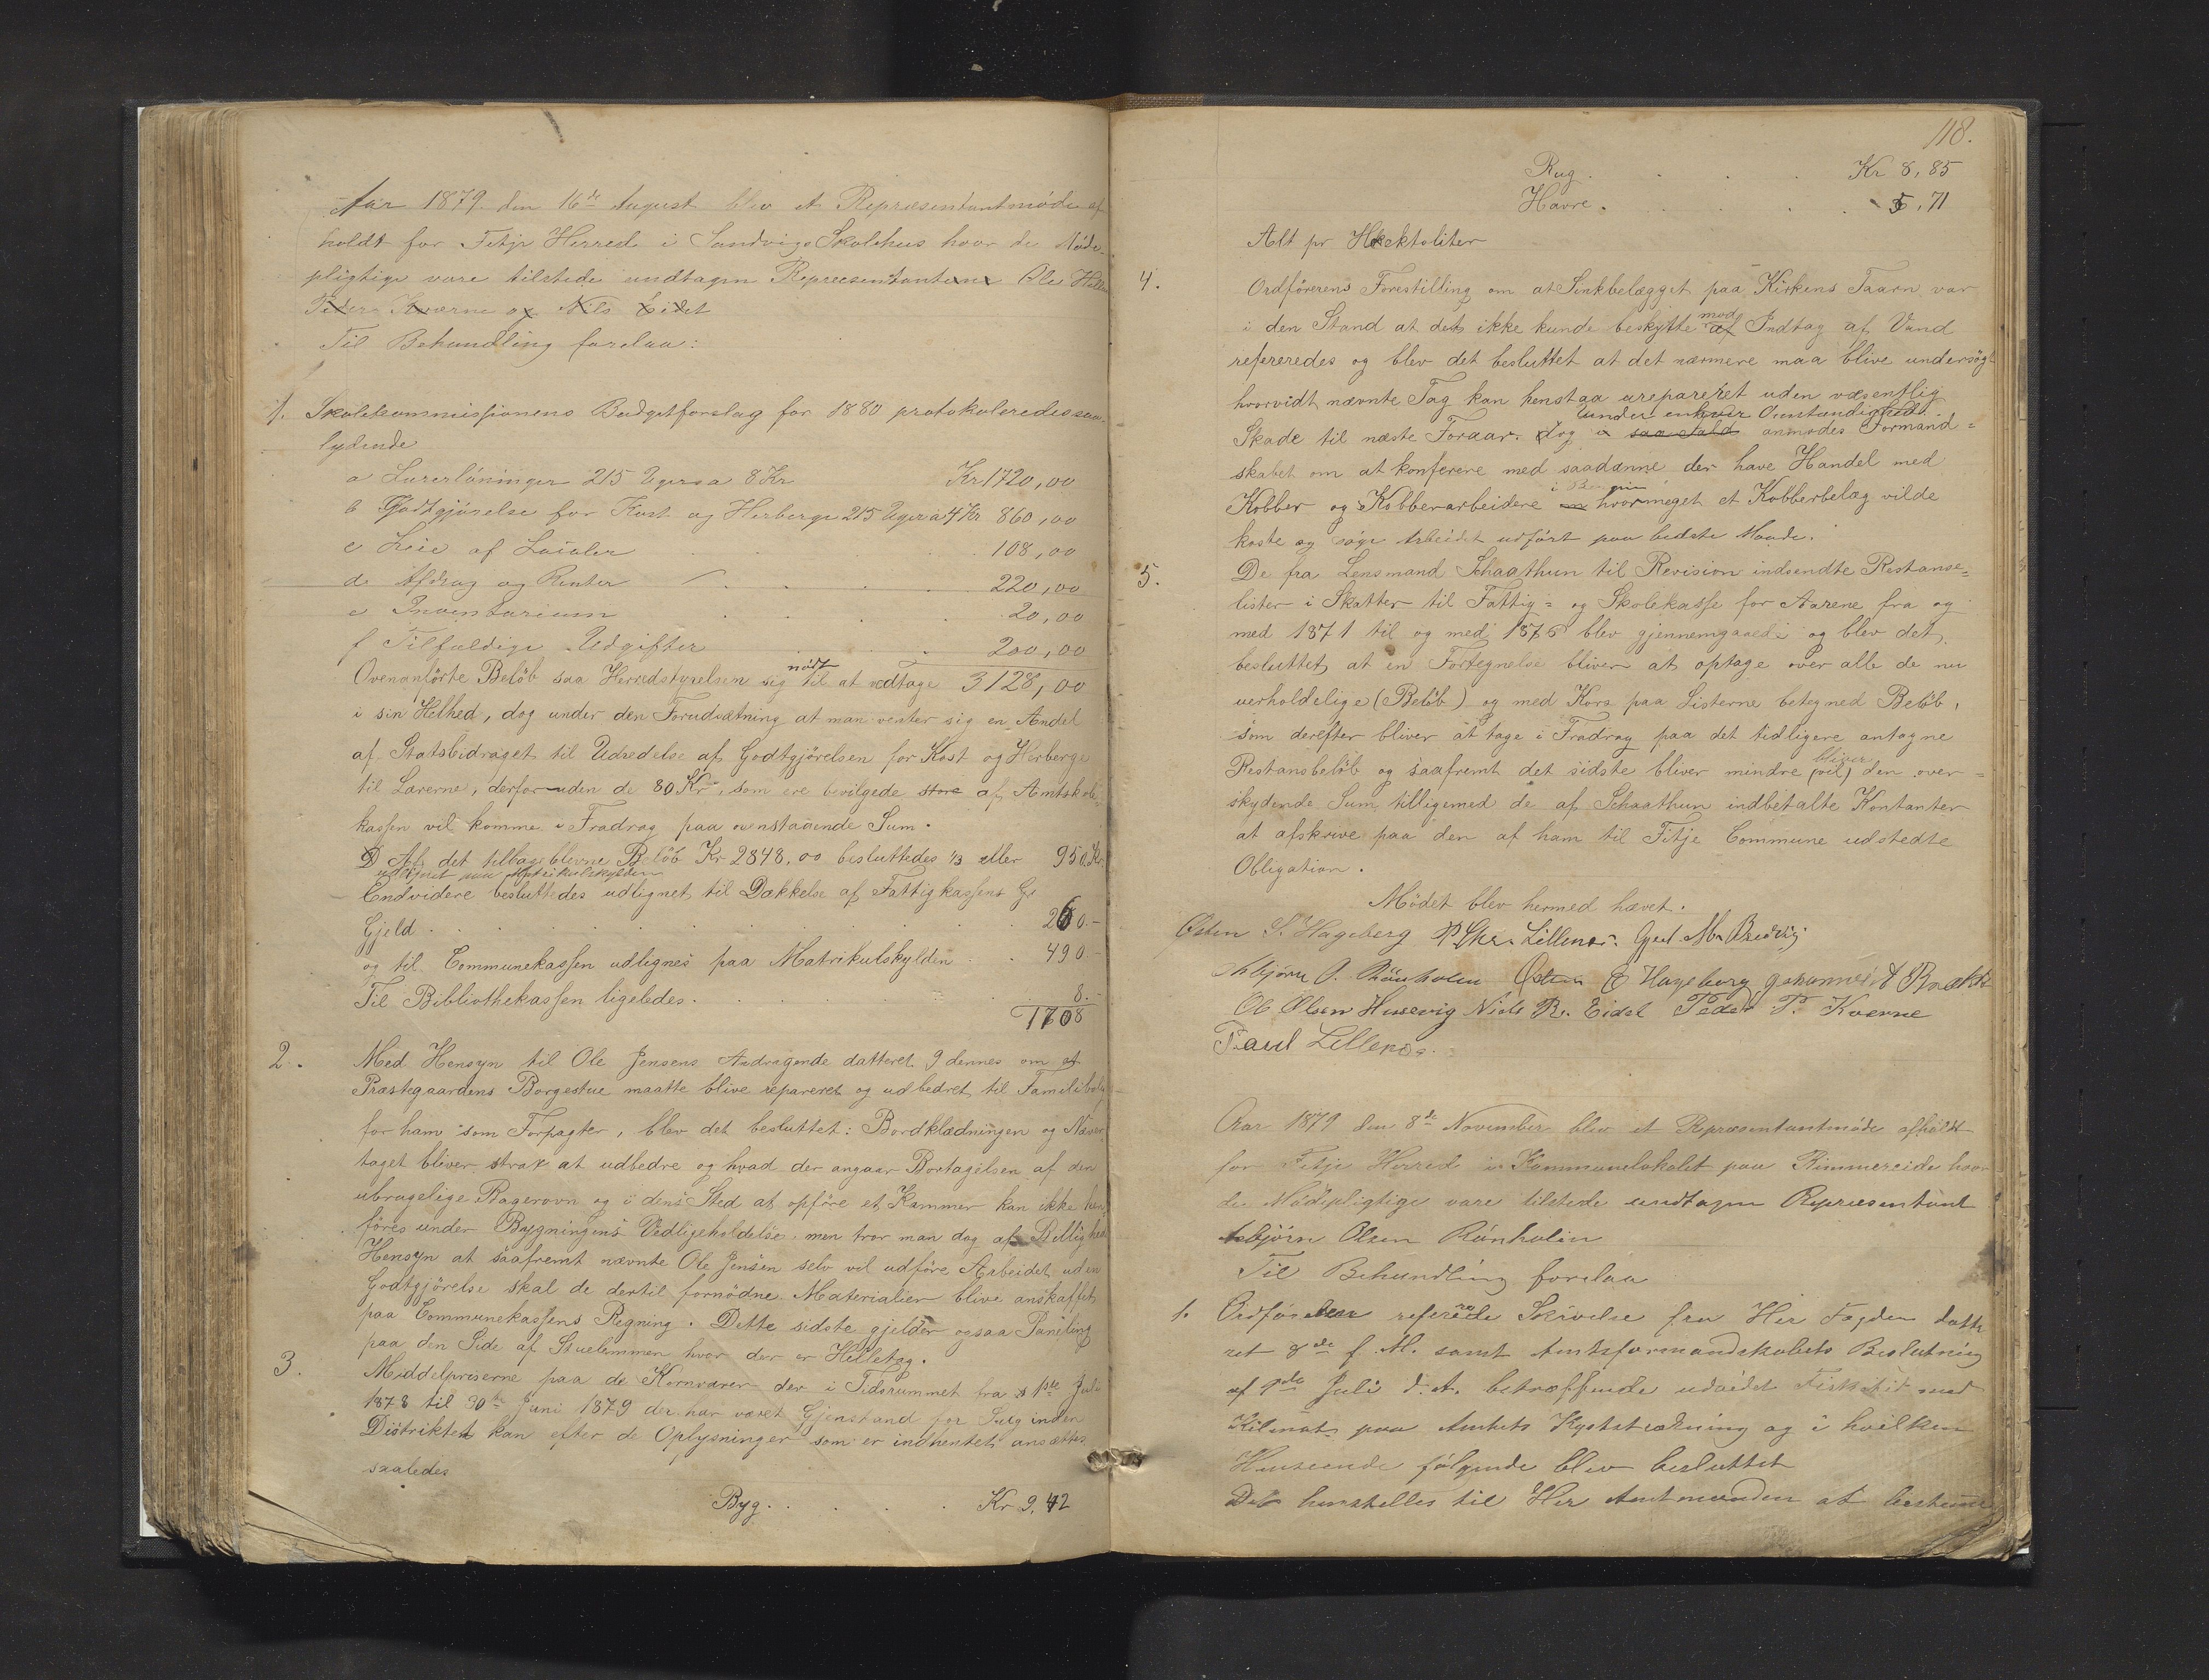 Aar 1879 den 16de August blev et Repræsentantmöde af-
holdt for Fitje Herred i Sandvigs Skolehus hvor de Möde-
pligtige vare tilstede undtagen Repræsentanten Ole
Peder Kværne og Nils Eidet
Til Behandling forelaa:
1. Skolekommissionens Budgetforslag for 1880 protokoleredes saa-
lydende
a Lærerlönninger 215 Uger a 8 Kr Kr 1720,00
b Godtgjörelse for Kost og Herberge 215 Uger a 4 Kr 860,00
c Leie af Localer 108,00
d Afdrag og Renter 220,00
e Inventarium 20,00
f Tilfældige Udgifter 200,00
Ovenanförte Belöb saa Herredstyrelsen sig nödt til at vedtage 3128,00
i sin Helhed, dog under den Forudsætning at man venter sig en Andel
af Statsbidraget til Udredelse af Godtgjörelsen for Kost og Herberge
til Lærerne, derforuden de 80 Kr, som ere bevilgede store af Amtskole-
kassen vil komme i Fradrag paa ovenstaaende Sum.
Af det tilbageblevne Belöb Kr 2848,00 besluttedes 1/3 eller 950 Kr
udlignet paa Matrikulskylden
Endvidere besluttedes udlignet til Dækkelse af Fattigkassens Gj
Gjeld 260.-
og til Communekassen udlignes paa Matrikulskylden 490.-
Til Bibliothekassen ligeledes 8.-
1708
2. Med Hensyn til Ole Jensens Andragende datteret 9 dennes om at
Præstegaardens Borgestue maatte blive repareret og udbedret til
for ham som Forpagter, blev det besluttet: Bordklædningen og Næver-
taget bliver strax at udbedre og hvad der angaar Bortagelsen af den
ubrugelige Bagerovn og i dens Sted at opföre et Kammer kan ikke hen-
föres under Bygningens Vedligeholdelse, men tror man dog af Billigheds
Hensyn at saafremt nævnte Ole Jensen selv vil udföre Arbeidet uden
Godtgjörelse skal de dertil fornödne Materialier blive anskaffet
paa Communekassens Regning. Dette sidste gjelder ogsaa Paneling
paa den Side af Stuelemmen hvor der er Helletag.
3. Middelpriserne paa de Kornvarer der i Tidsrummet fra 1ste Juli
1878 til 30te Juni 1879 der har været Gjenstand for Salg inden
Distriktet kan efter de Oplysninger som er indhentet ansættes
saaledes
Byg. Kr 9,42
118.
Rug Kr 8,85
Havre 5,71
Alt pr Hektoliter
4. Ordförerens Forestilling om at Sinkbelægget paa Kirkens Taarn var
i den Stand at det ikke kunde beskytte af mod Indtag af Vand
refereredes og blev det besluttet at det nærmere maa blive undersögt
hvorvidt nævnte Tag kan henstaa urepareret uden væsentlig
under enhver Omstændighed
Skade til næste Foraar. dog i saa Fald anmodes Formand-
skabet om at konferere med saadanne der have Handel med
i Bergen
Kobber og Kobberarbeidere om hvormeget et Kobberbelæg vilde
koste og söge Arbeidet udfört paa bedste Maade.
5. De fra Lensmand Schaathun til Revision indsendte Restanse-
lister i Skatter til Fattig- og Skolekasse for Aarene fra og
med 1871 til og med 1876 blev gjennemgaaede og blev det
besluttet at en Fortegnelse bliver at optage over alle de nu
uerholdelige (Belöb) og med Kors paa Listerne betegned Belöb,
som derefter bliver at tage i Fradrag paa det tidligere antagne
Restansbelöb og saafremt det sidste bliver mindre (vil) bliver den over-
skydende Sum tilligemed de af Schaathun indbetalte Kontanter
at afskrive paa den af ham til Fitje Commune udstedte
Obligation.
Mödet blev hermed hævet.
Östen S. Hageberg P Chr. Lillenes. Gjert M.
Asbjörn O. Rönholm Östen E Hageberg Johannes
Ole Olsen Hussevig Niels R. Eidet Peder P. Kværne
Paul Lillenes.
Aar 1879 den 8de November blev et Repræsentantmöde afholdt
for Fitje Herred i Kommunelokalet paa Rimmereide hvor
de Mödepligtige vare tilstede undtagen Repræsentant
Asbjörn Olsen Rönholm
Til Behandling forelaa
1. Ordföreren refererede Skrivelse fra Her Fogden datte
ret 8de f. M. samt Amtsformandskabets Beslutning
af 9de Juli d. A. betræffende
paa Amtets Kyststrækning og i hvilken
Henseende fölgende blev besluttet
Det henstilles til Her Amtmanden at bestemme